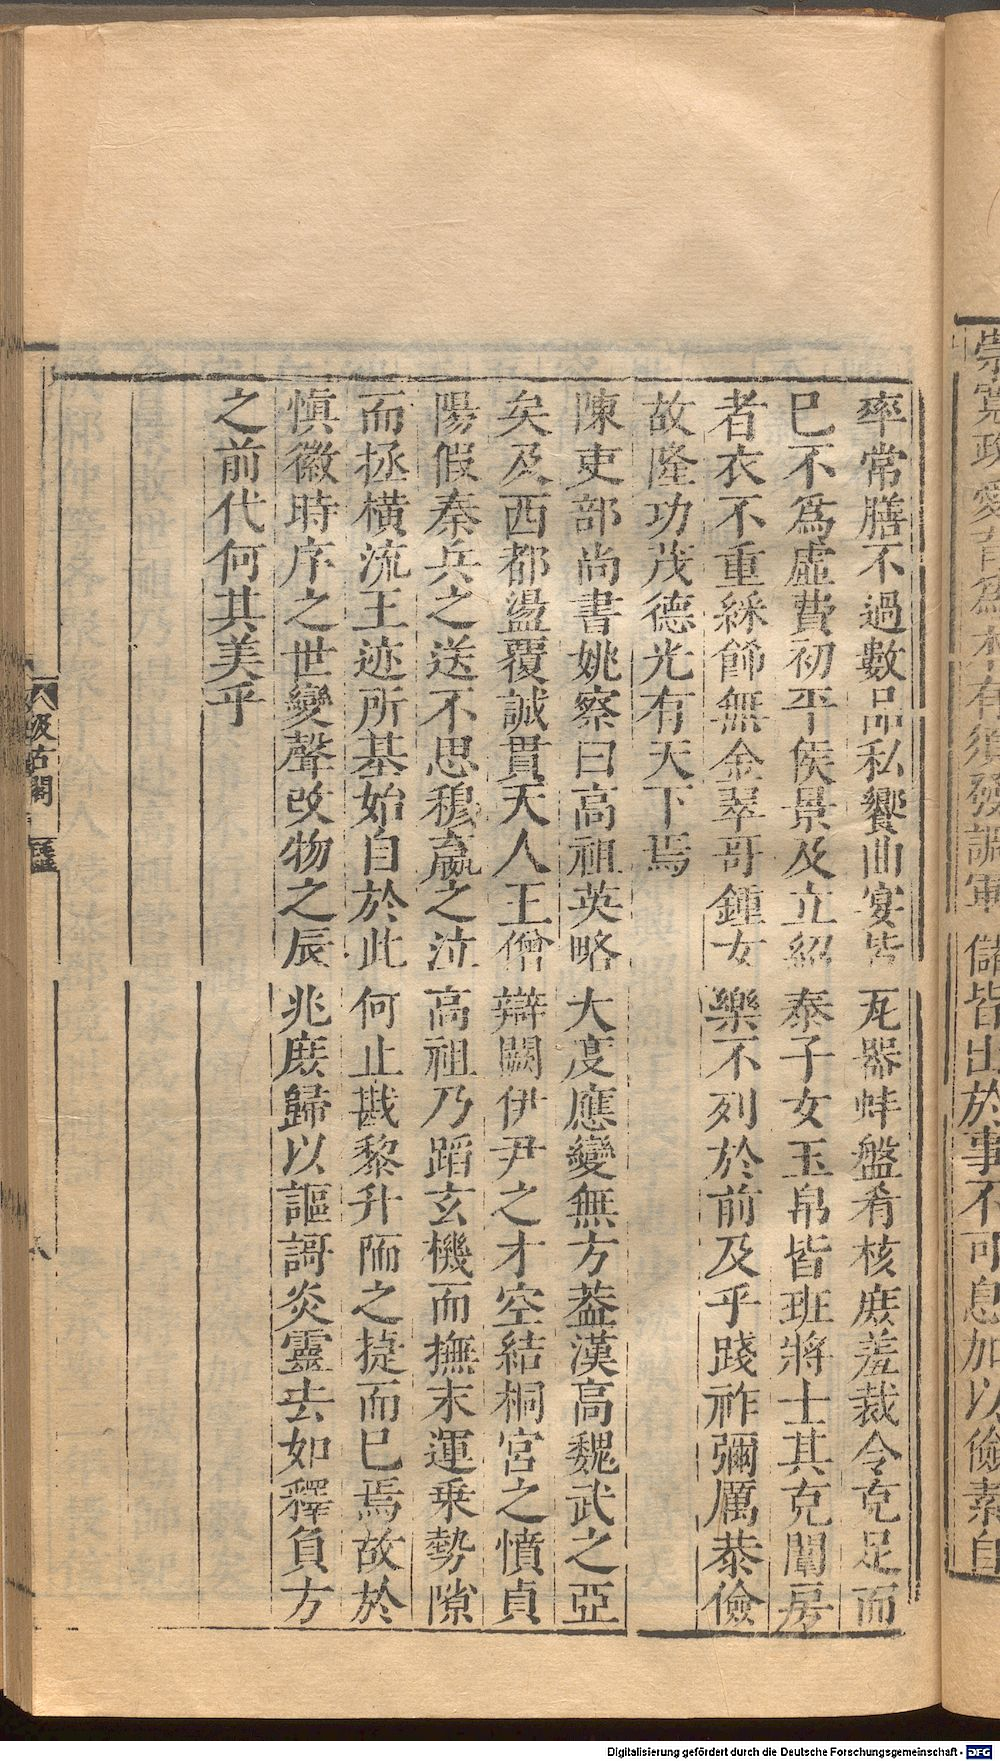 崇寬政愛育為本有須發調軍儲皆出於事不可息加以儉素自
率常膳不過數品私饗曲宴皆瓦器蚌盤肴核庶羞裁令充足而
已不為虛費初平侯景及立紹泰子女玉帛皆班將士其充闈房
者衣不重綵飾無金翠哥鍾女樂不列於前及乎踐祚彌厲恭儉
故隆功茂德光有天下焉
陳吏部尚書姚察曰高祖英略大度應變無方蓋漢高魏武之亞
矣及西都盪覆誠貫天人王僧辯闕伊尹之才空結桐宮之憤貞
陽假秦兵之送不思穆嬴之泣高祖乃蹈玄機而撫末運乗勢隙
而拯橫流王迹所基始自於此何止戡黎升陑之捷而已焉故於
慎徽時序之世變聲改物之辰兆庶歸以謳謌炎靈去如釋負方
之前代何其美乎
汲古閣
八
Digitalisierung gefördert durch die Deutsche Forschungsgemeinschaft - DFG